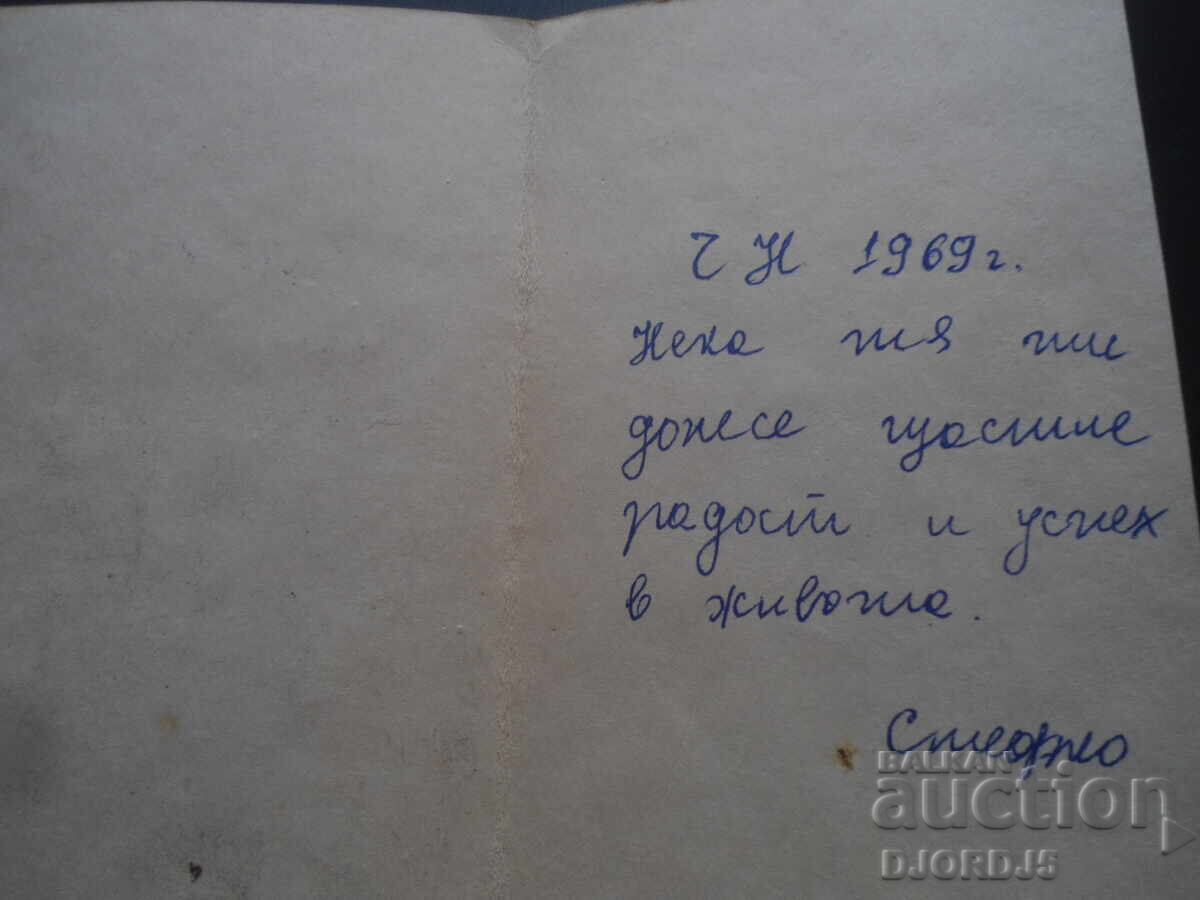 Ч Н 1969 г.
Нека тя ти
донесе щастие
радост и успех
в живота.
BALKAN
auction
DJORDJ5